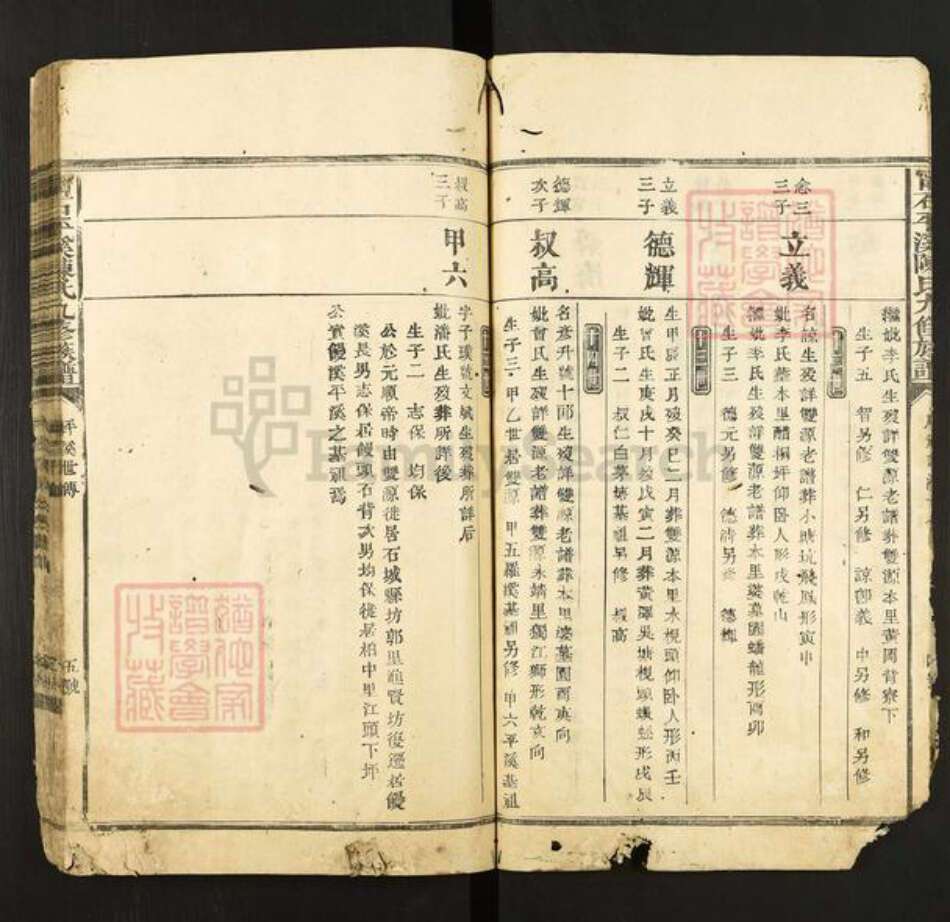 繼妣李氏生歿詳雙源老譜葬雙源本里黃岡背寮下
生子五 智另修 仁另修 諒郎義 中另修 和另修
念三三子
立義
名諒生歿詳雙源老譜葬小塘坑飛鳳形寅申
妣李氏葬本里醋㭎坪仰臥人形戌乾山
繼妣李氏生歿詳雙源老譜葬本里婆墓園蟠龍形酉卯
生子三 德元另修 德清另修 德輝
立義三子
德輝
生甲辰正月歿癸巳二月葬雙源本里水梘頭仰卧人形丙壬
妣曾氏生庚戌十月歿戊寅二月葬黃澤吳塘梘頭蜈蚣形戌辰
生子二 叔仁白茅嶺基祖另修 叔高
德輝次子
叔高
名彥升號十郎生歿詳雙源老譜葬本里婆墓園酉亥向
妣曾氏生歿詳雙源老譜葬雙源永靖里獨江獅形乾亥向
生子三 甲乙世居雙源 甲五羅溪基祖另修 甲六平溪基祖
叔高三子
甲六
字子璞號文斌生歿葬所詳后
妣潘氏生歿葬所詳後
生子二 志保 均保
公於元順帝時由雙源徙居石城縣坊郭里進賢坊復遷居饅
溪長男志保居饅頭石背次男均保徙居柏中里江頭下坪
公實饅溪平溪之基祖焉
石平溪陳氏九修族譜
平溪世傳
五號
譜學會
收藏